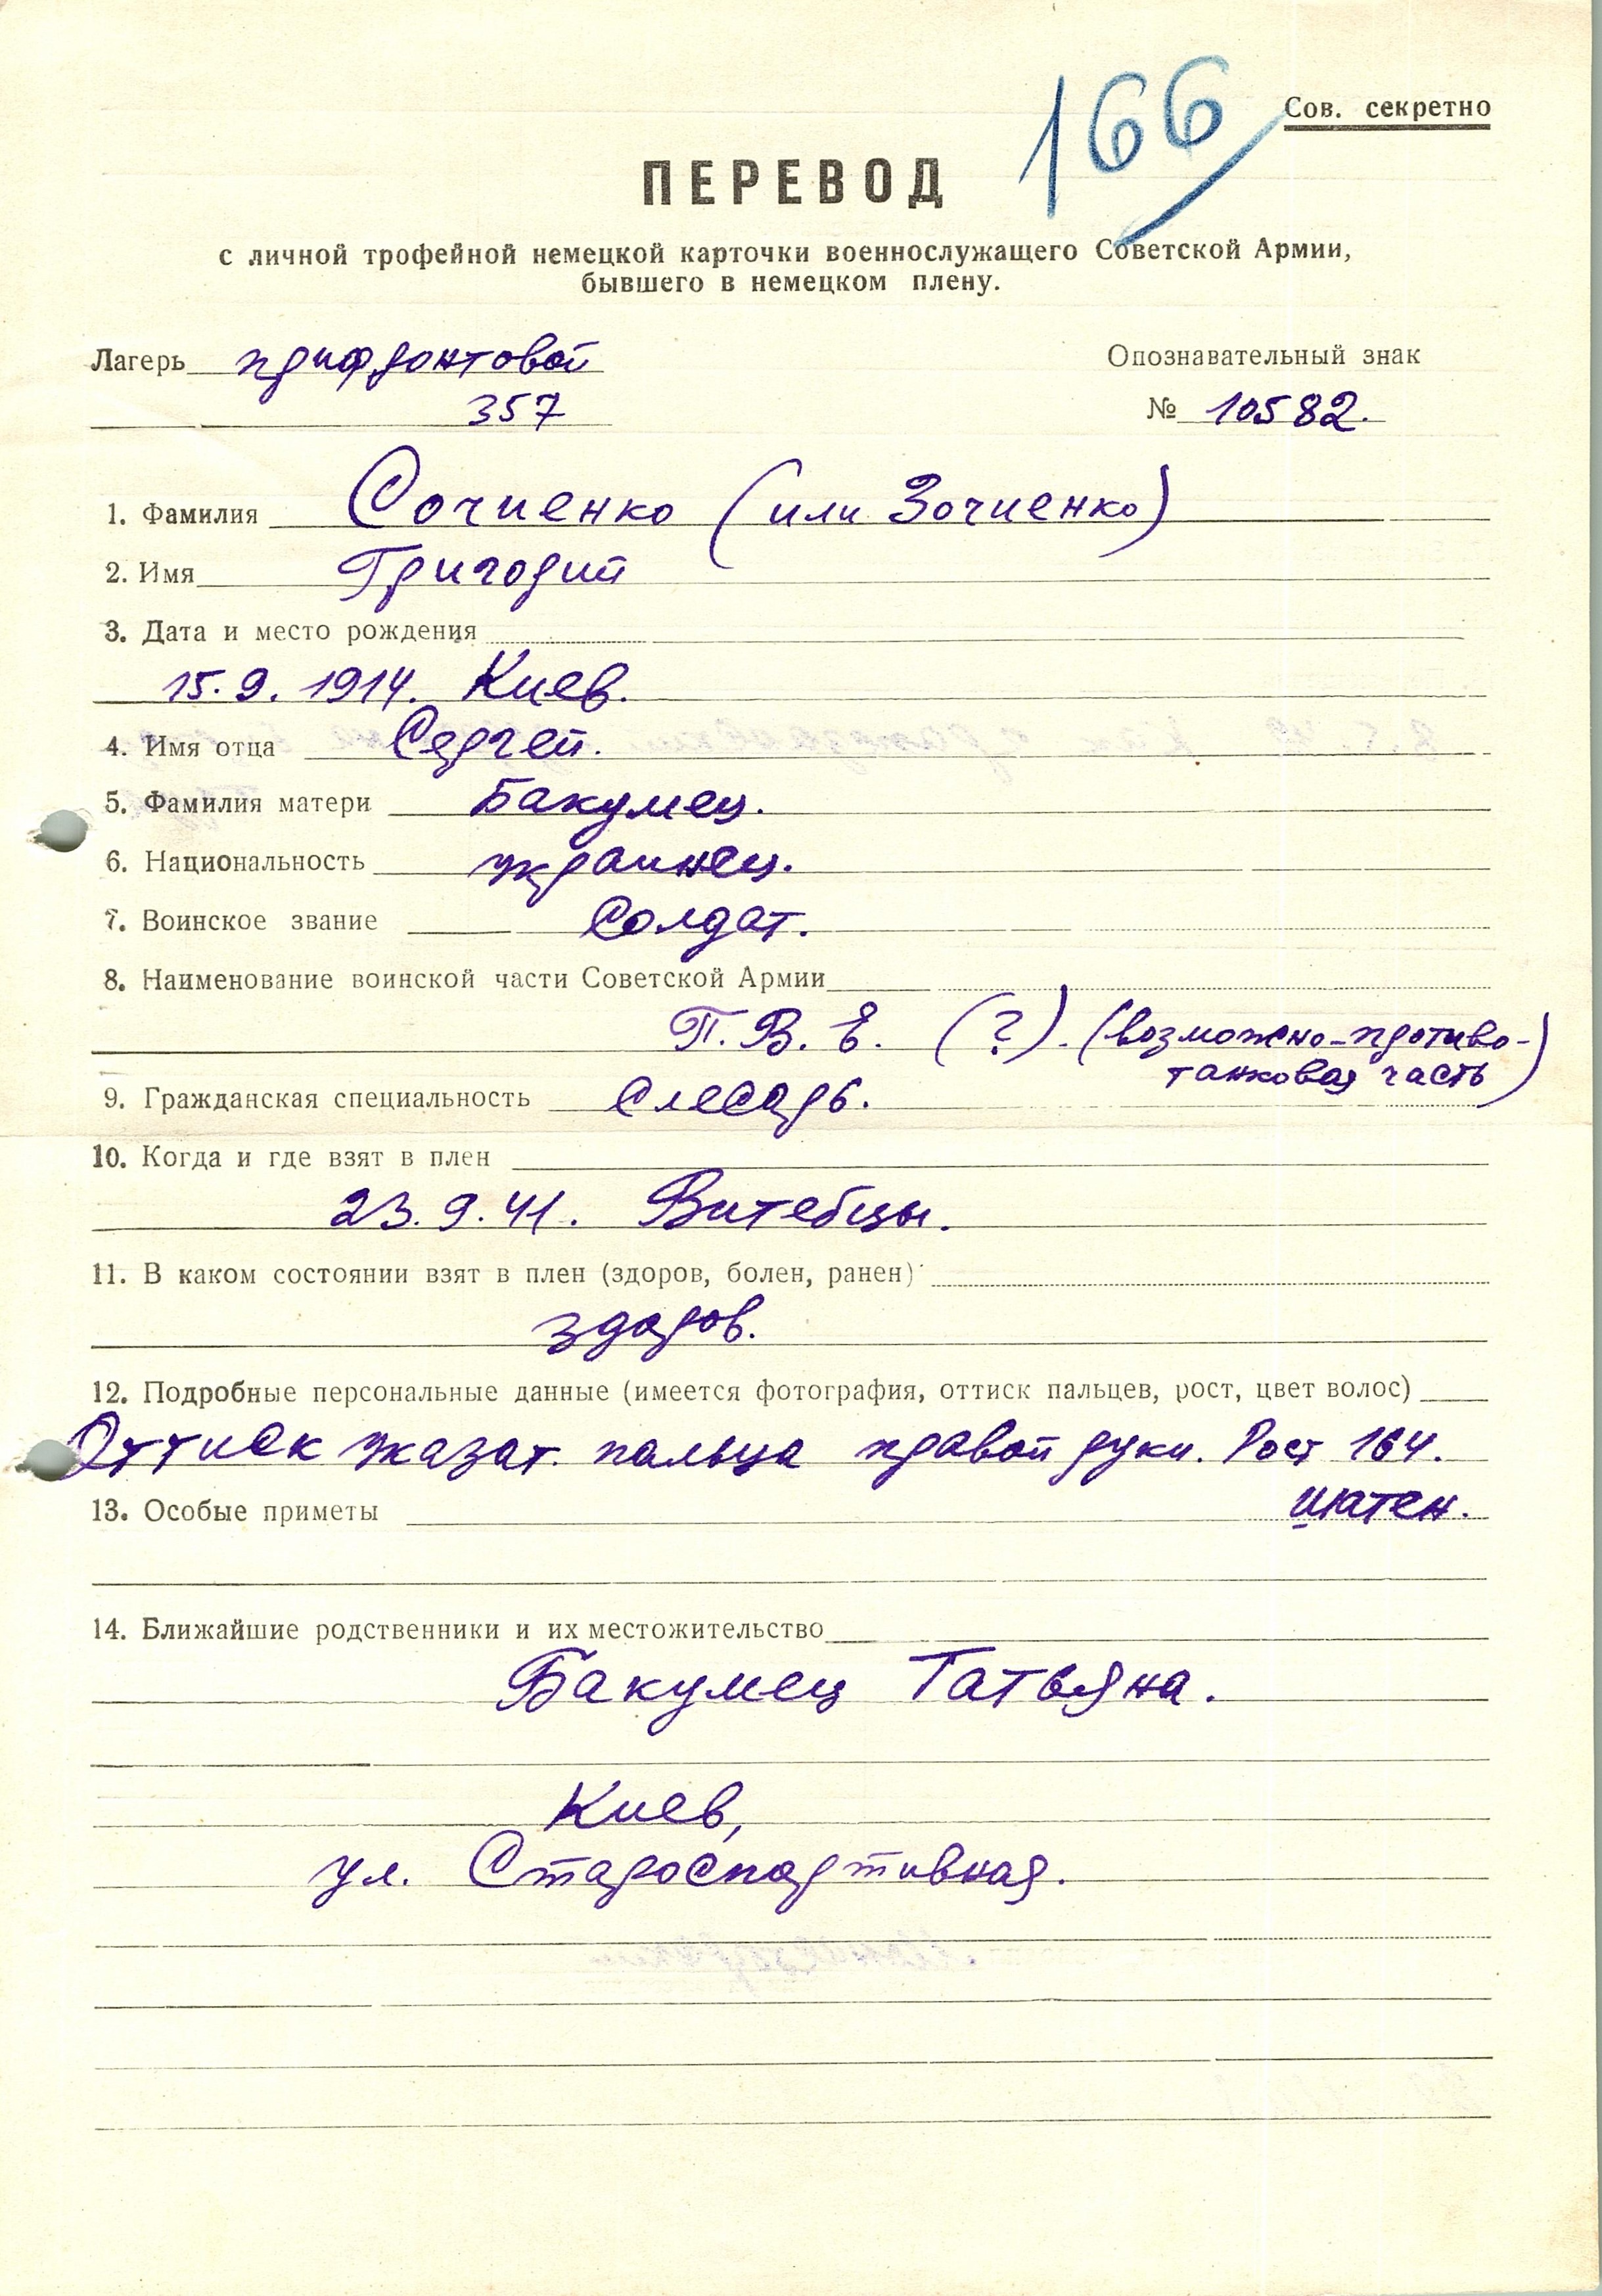 166
Сов. секретно
ПЕРЕВОД
с личной трофейной немецкой карточки военнослужащего Советской Армии,
бывшего в немецком плену.
Лагерь прифронтовой
Опознавательный знак
357
№ 10582.
1. Фамилия Сочиенко (или Зочиенко)
2. Имя Григорий
3. Дата и место рождения
15.9.1914. Киев.
4. Имя отца Сергей.
5. Фамилия матери Бакумец.
6. Национальность украинец.
7. Воинское звание Солдат.
8. Наименование воинской части Советской Армии
П.В.Е. (?). (возможно-противо-
танковая часть)
9. Гражданская специальность Слесарь.
10. Когда и где взят в плен
23.9.41. Витебцы.
11. В каком состоянии взят в плен (здоров, болен, ранен)
здоров.
12. Подробные персональные данные (имеется фотография, оттиск пальцев, рост, цвет волос)
Оттиск указат. пальца правой руки. Рост 164.
шатен.
13. Особые приметы
14. Ближайшие родственники и их местожительство
Бакумец Татьяна.
Киев,
ул. Староспортивная.